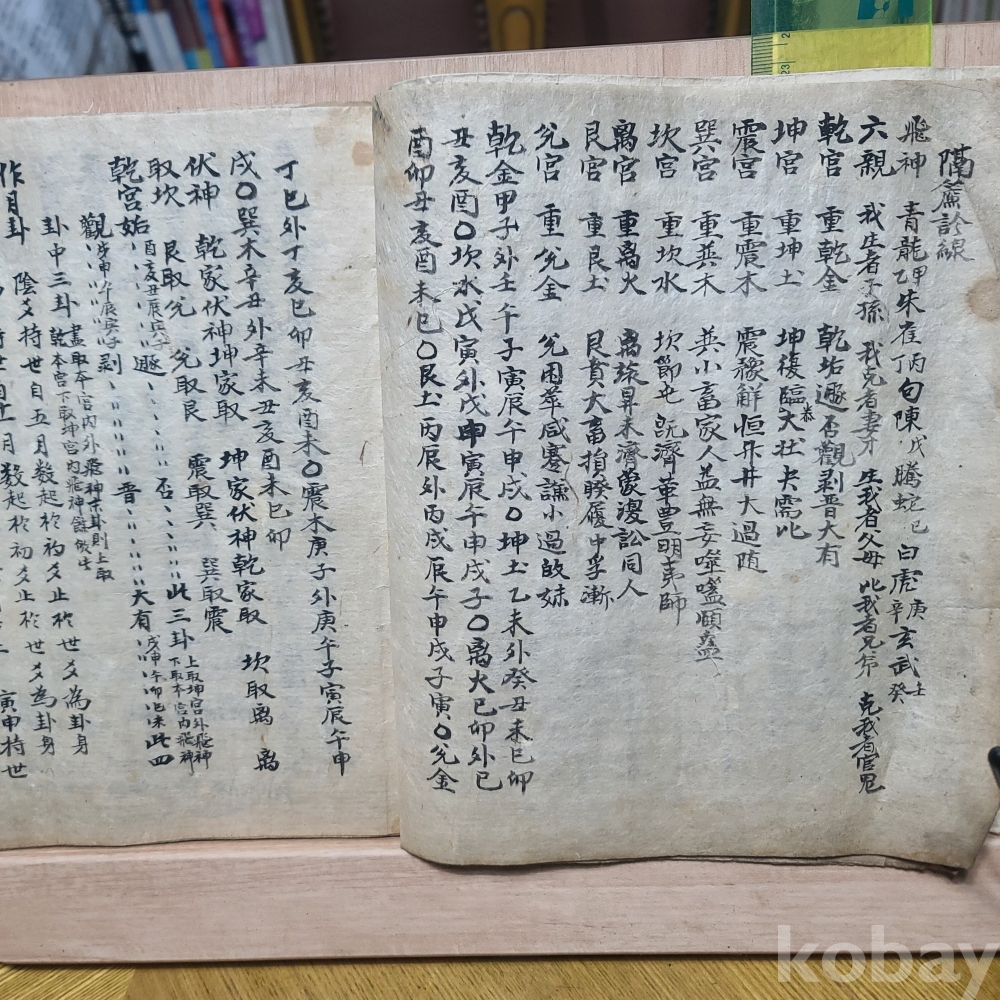 隔簾診線
飛神 青龍甲乙朱雀丙丁句陳戊騰蛇巳白虎庚辛玄武壬癸
六親 我生者子孫 我克者妻才 生我者父母 比我者兄弟 克我者官鬼
乾宮 重乾金 乾垢遯否觀剥晋大有
坤宮 重坤土 坤復臨泰大壮夬需比
震宮 重震木 震豫解恒升井大過随
巽宮 重巽木 巽小畜家人益無妄噬嗑頤蠱
坎宮 重坎水 坎節屯既濟革豊明夷師
离宮 重离火 离旅昇未濟蒙渙訟同人
艮宮 重艮土 艮賁大畜損睽履中孚漸
兌宮 重兌金 兌困萃咸蹇謙小過歸妹
乾金甲子外壬午子寅辰午申戌〇坤土乙未外癸丑未巳卯
丑亥酉〇坎水戊寅外戊申寅辰午申戌子〇离火己卯外己
酉卯丑亥酉未巳〇艮土丙辰外丙戌辰午申戌子寅〇兌金
丁巳外丁亥巳卯丑亥酉未〇震木庚子外庚午子寅辰午申
戌〇巽木辛丑外辛未丑亥酉未巳卯
伏神 乾家伏神坤家取 坤家伏神乾家取 坎取离 离
取坎 艮取兌 兌取艮 震取巽 巽取震
乾宮姤酉亥丑辰 遯 否 此三卦上取坤宮外飛神下取本宮内飛神
觀 剥 晋 大有 此四
卦中三卦盡取本宮内外飛神
作月卦 陰爻持世自五月数起於初爻止於世爻為卦身
月数起於初爻止於世爻為卦身
寅申持世
kobay